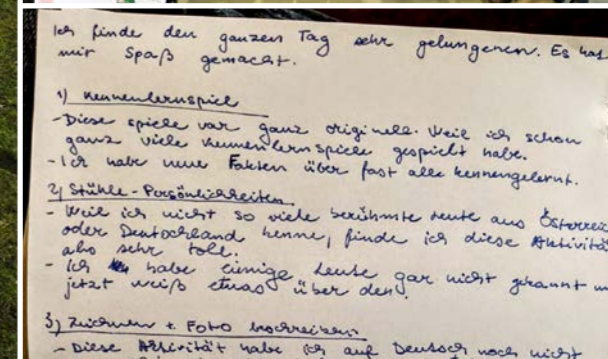 Ich finde den ganzen Tag sehr gelungenen. Es hat
mir Spaß gemacht.
1) Kennenlernspiel
- Diese spiele var ganz originell. Weil ich schon
ganz viele kennenlernspiele gespielt habe.
- Ich habe neue Fakten über fast alle kennengelernt.
2) Stühle - Persönlichkeiten
- Weil ich nicht so viele berühmte Leute aus Österreic
oder Deutschland kenne, finde ich diese Aktivitä
also sehr toll.
- Ich habe einige Leute gar nicht gekannt un
jetzt weiß etwas über den.
3) Zeichnen + Foto beschreiben
- Diese Aktivität habe ich auf Deutsch noch nicht